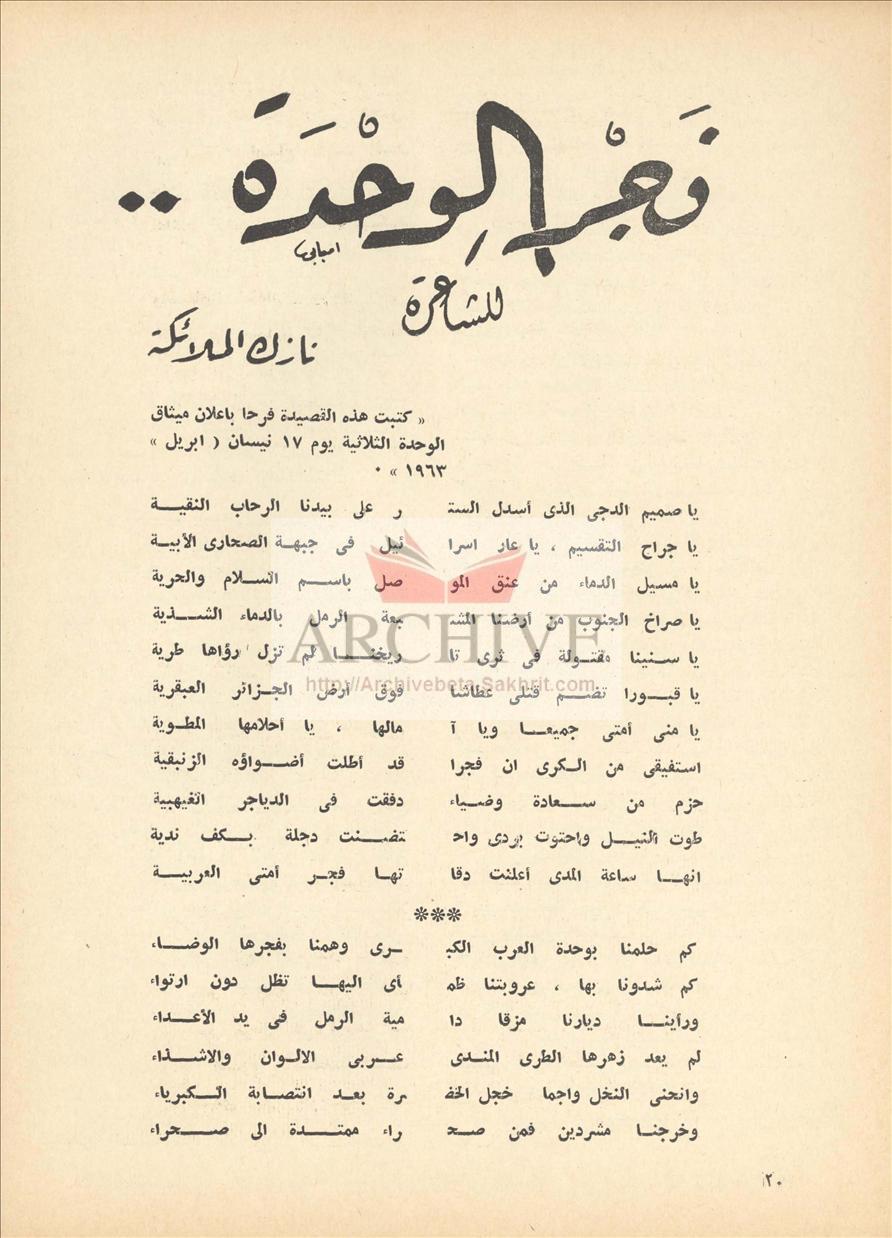 فَجْرُ الوِحْدَة ..
امبابى
للشاعرة
نازك الملائكة
« كتبت هذه القصيدة فرحا باعلان ميثاق
الوحدة الثلاثية يوم ١٧ نيسان ( ابريل »
١٩٦٣ » ٠
يا صميم الدجى الذى أسدل الست ر على بيدنا الرحاب النقية
يا جراح التقسيم ، يا عار اسرا ئيل فى جبهة الصحارى الأبية
يا مسيل الدماء من عنق المو صل باسم السلام والحرية
يا صراخ الجنوب من أرضنا المش بعة الرمل بالدماء الشذية
يا سنينا مقتولة فى ثرى تا ريخنا لم تزل رؤاها طرية
يا قبورا تضم قتلى عطاشا فوق أرض الجزائر العبقرية
يا منى أمتى جميعا ويا آ مالها ، يا أحلامها المطوية
استفيقى من الكرى ان فجرا قد أطلت أضواؤه الزنبقية
حزم من سعادة وضياء دفقت فى الدياجر الغيهبية
طوت النيل واحتوت بردى واح تضنت دجلة بكف ندية
انها ساعة المدى أعلنت دقا تها فجر أمتى العربية
***
كم حلمنا بوحدة العرب الكب رى وهمنا بفجرها الوضاء
كم شدونا بها ، عروبتنا ظم أى اليها تظل دون ارتواء
ورأينا ديارنا مزقا دا مية الرمل فى يد الأعداء
لم يعد زهرها الطرى المندى عربى الالوان والاشذاء
وانحنى النخل واجما خجل الخض رة بعد انتصابة الكبرياء
وخرجنا مشردين فمن صح راء ممتدة الى صحراء
ARCHIVE
http://Archivebeta.Sakhrit.com
٢٠